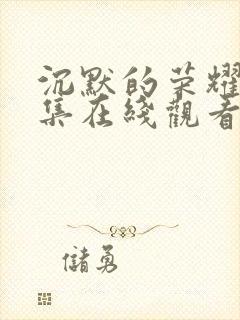 沉默的荣耀
集在綫觀看
儲勇